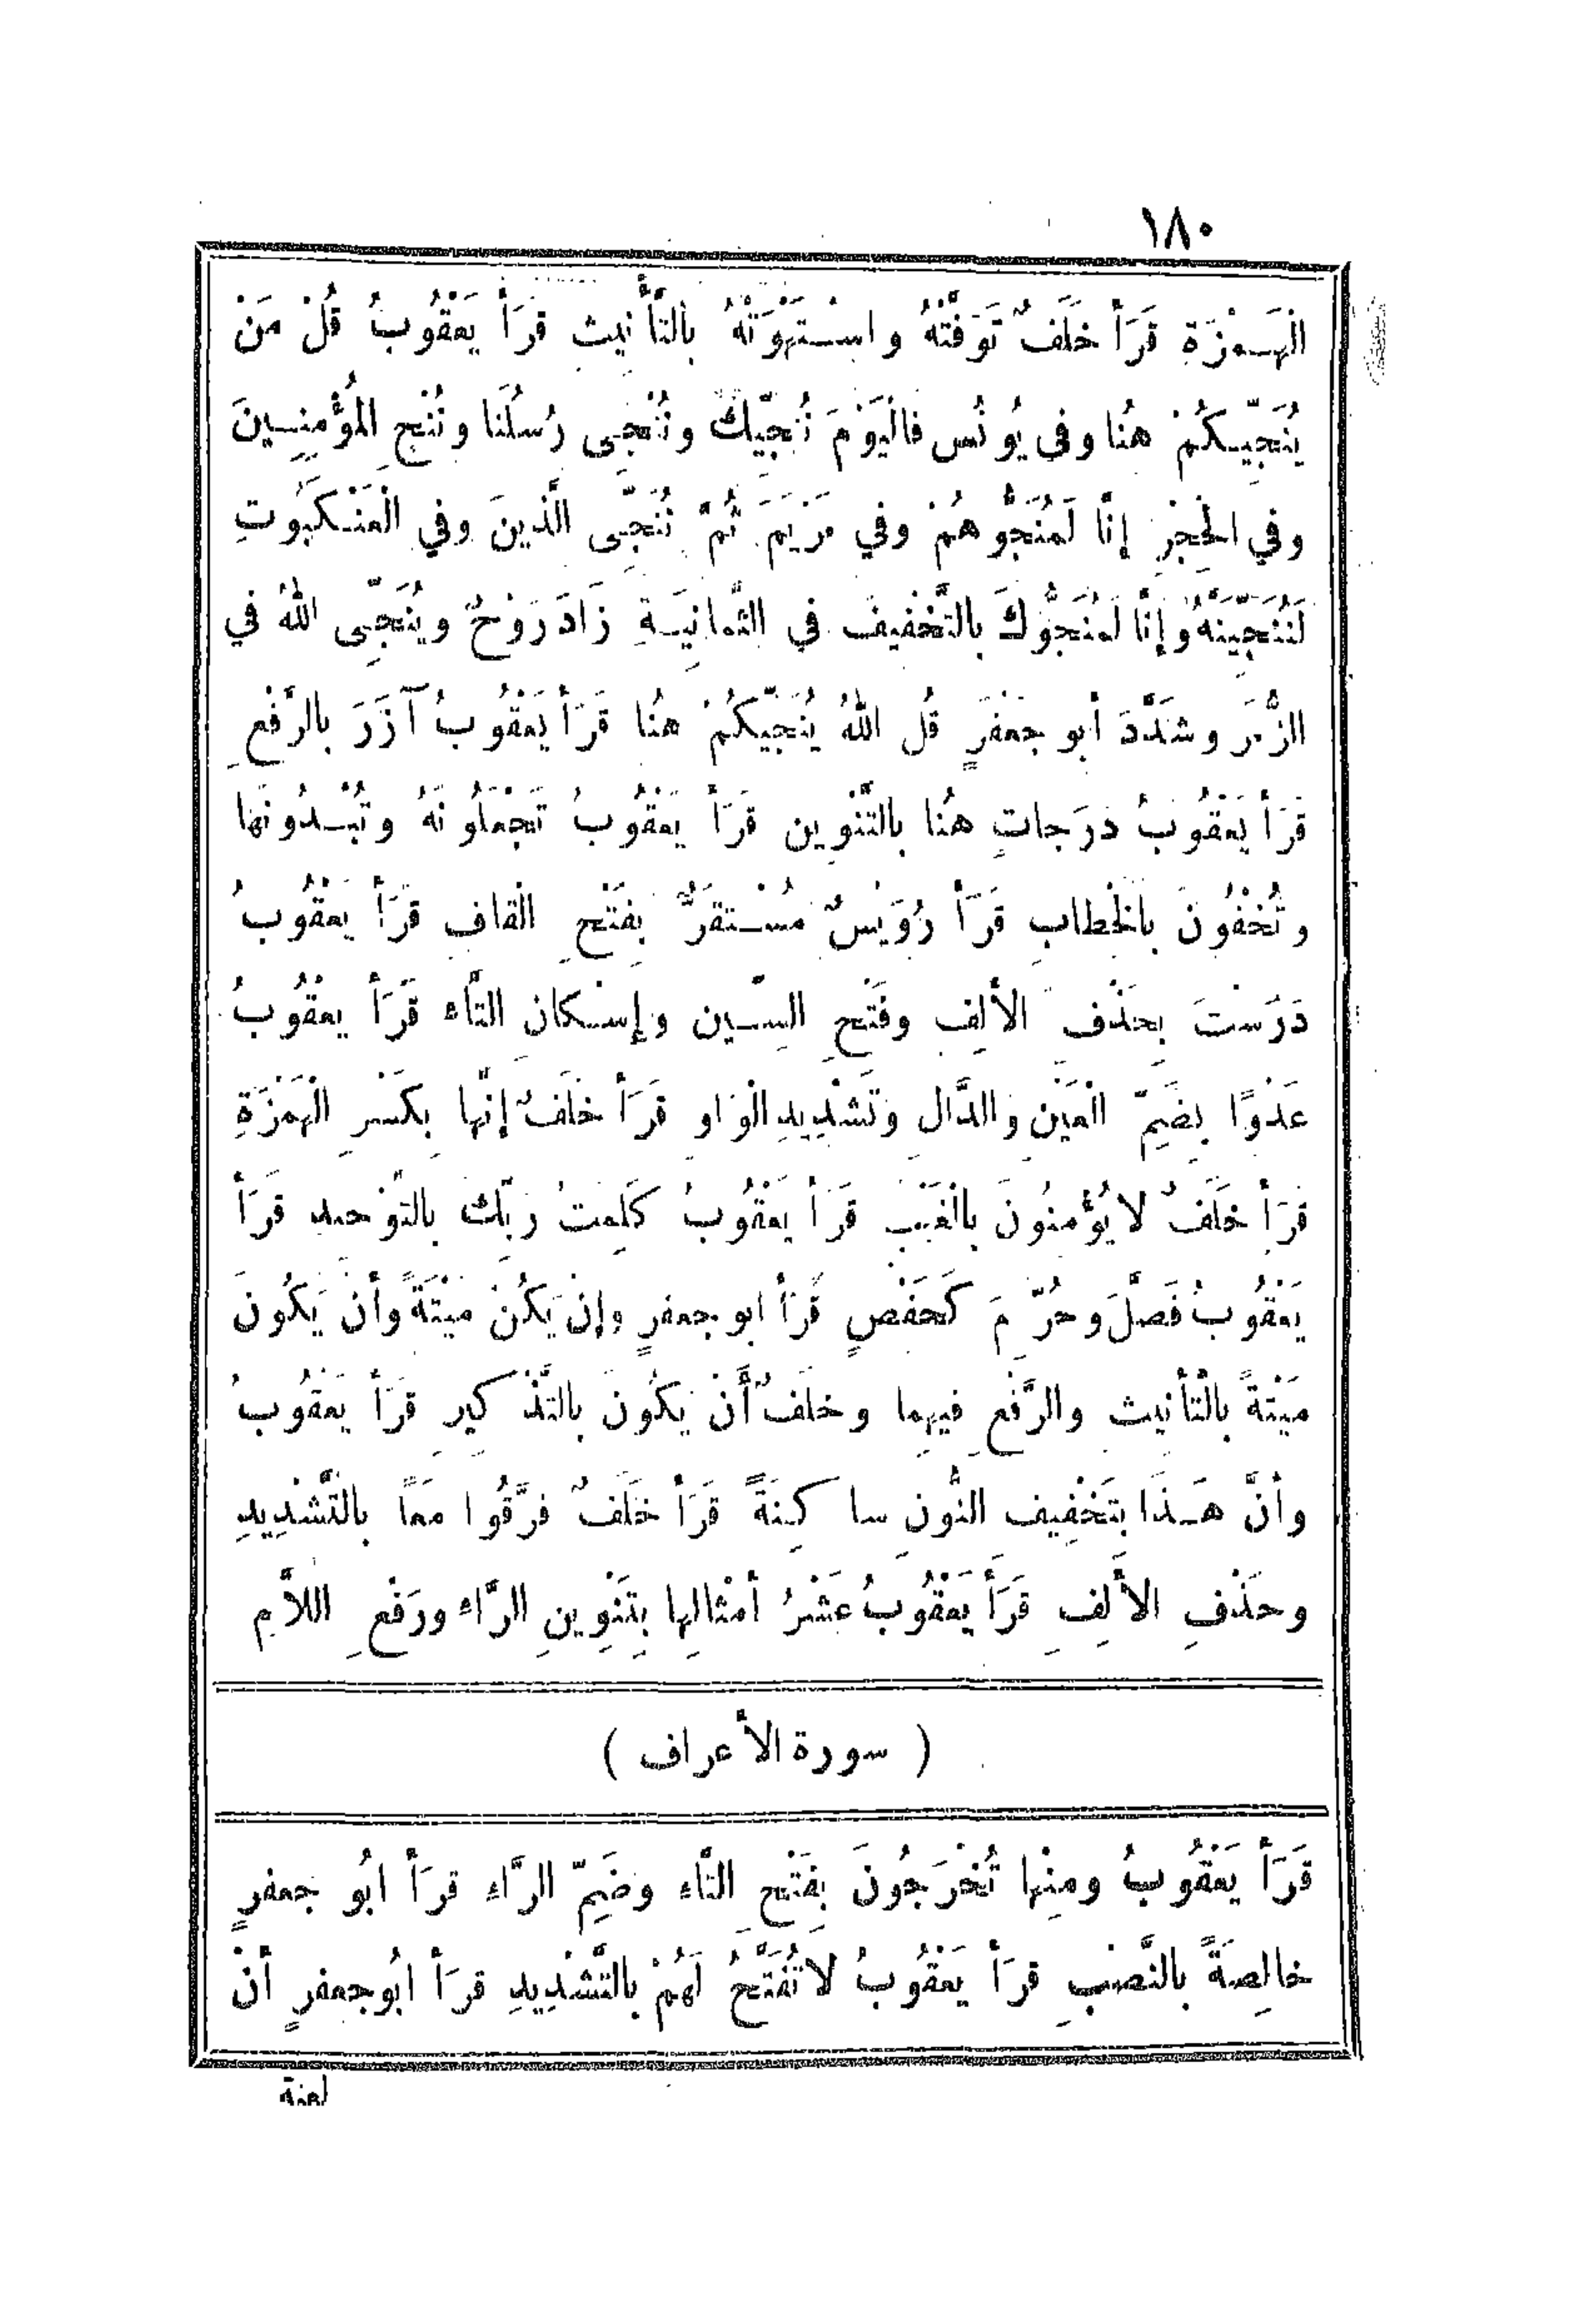 ١٨٠
الْهَمْزَةِ قَرَأَ خَلَفٌ تَوَفَّتْهُ واسْتَهْوَتْهُ بالتَّأْنِيثِ قَرَأَ يَعْقُوبُ قُلْ مَنْ
يُنَجِّيكُمْ هُنا وفي يُونُس فالْيَوْمَ نُنَجِّيكَ ونُنَجِّى رُسُلَنا ونُنْجِ الْمُؤْمِنِينَ
وفي الحِجْرِ إنَّا لَمُنَجُّوهُمْ وفي مَرْيَمَ ثُمَّ نُنَجِّى الَّذينَ وفي الْعَنْكَبُوتِ
لَنُنَجِّيَنَّهُ وإنَّا لَمُنَجُّوكَ بالتَّخْفِيفِ في الثَّمانِيَةِ زَادَ رَوْحٌ ويُنَجِّى اللهُ في
الزُّمَر وشَدَّدَ أبو جَعْفَرٍ قُلِ اللهُ يُنَجِّيكُمْ هُنا قَرَأَ يَعْقُوبُ آزَرَ بالرَّفْعِ
قَرَأَ يَعْقُوبُ دَرَجاتٍ هُنا بالتَّنْوِين قَرَأَ يَعْقُوبُ تَجْعَلُونَهُ وتُبْدُونَها
وتُخْفُونَ بالخِطابِ قَرَأَ رُوَيْسٌ مُسْتَقَرٌّ بِفَتْحِ الْقافِ قَرَأَ يَعْقُوبُ
دَرَسَتْ بِحَذْفِ الأَلِفِ وفَتْحِ السِّين وإسْكانِ التَّاء قَرَأَ يعْقُوبُ
عَدْوًا بِضَمِّ الْعَيْنِ والدَّالِ وتَشْدِيدِ الْوَاوِ قَرَأَ خَلَفٌ إنَّها بِكَسْرِ الْهَمْزَةِ
قَرَأَ خَلَفٌ لا يُؤْمِنُونَ بالْغَيْبِ قَرَأَ يَعْقُوبُ كَلِمَتُ رَبِّكَ بالتَّوْحيد قَرَأَ
يَعْقُوبُ فَصَّلَ وحُرِّمَ كَحَفْصٍ قَرَأَ ابو جعفرٍ وإنْ يَكُنْ مَيْتَةً وأنْ يَكُونَ
مَيْتَةً بالْتَأنيث والرَّفْعِ فيهِما وخلَفٌ أَنْ يَكُونَ بالتَّذْكِيرِ قَرَأَ يَعْقُوبُ
وأنَّ هَـذَا بتَخْفِيف النُّونِ ساكِنَةً قَرَأَ خَلَفٌ فرَّقُوا مَعًا بالتَّشْدِيدِ
وحَذْفِ الأَلِفِ قَرَأَ يَعْقُوبُ عَشْرُ أمْثالِها بِتَنْوِينِ الرَّاء ورَفْعِ اللاَّمِ
( سورة الأعراف )
قَرَأَ يَعْقُوبُ ومنْها تُخْرَجُونَ بِفَتْحِ التَّاء وضَمِّ الرَّاء قرَأَ ابُو جعفرٍ
خالِصَةً بالنَّصْبِ قرَأَ يَعْقُوبُ لاَ تُفَتَّحُ لَهُمْ بالتَّشْدِيدِ قرَأَ ابُو جعفرٍ أنْ
لعنة